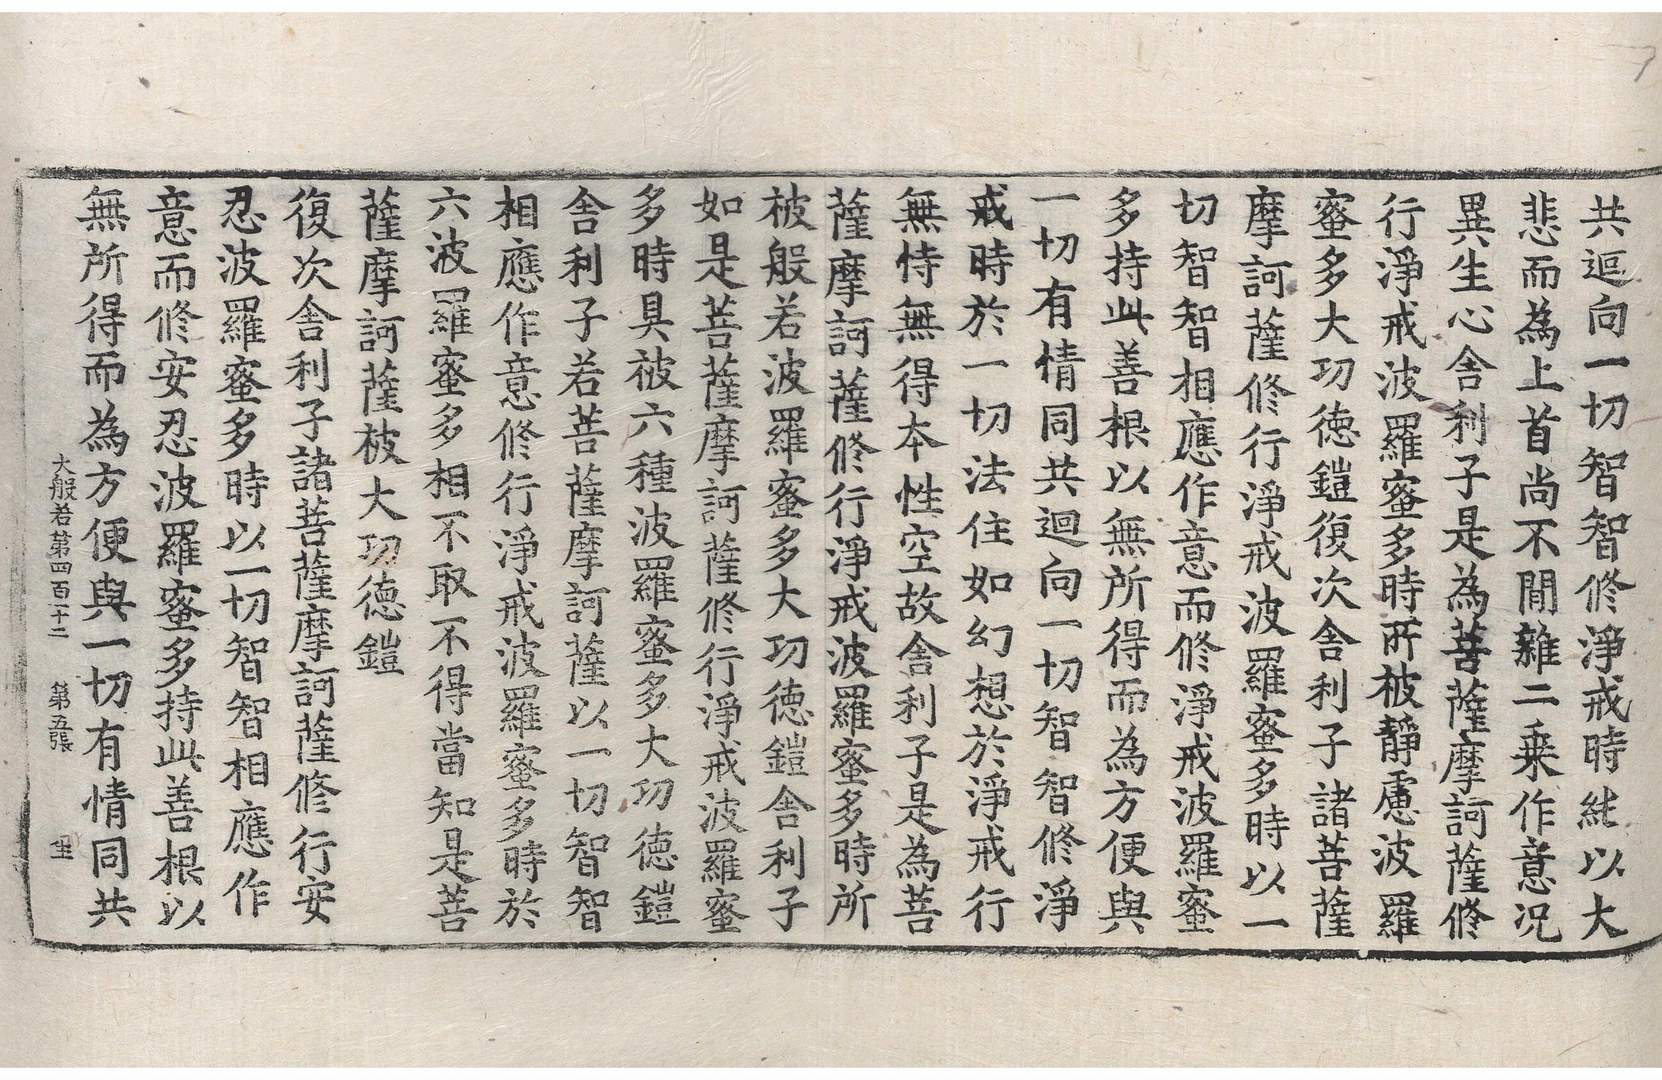 共迴向一切智智修淨戒時純以大
悲而為上首尚不閒雜二乗作意況
異生心舎利子是為菩薩摩訶薩修
行淨戒波羅蜜多時所被靜慮波羅
蜜多大功徳鎧復次舎利子諸菩薩
摩訶薩修行淨戒波羅蜜多時以一
切智智相應作意而修淨戒波羅蜜
多持此善根以無所得而為方便與
一切有情同共迴向一切智智修淨
戒時於一切法住如幻想於淨戒行
無恃無得本性空故舎利子是為菩
薩摩訶薩修行淨戒波羅蜜多時所
被般若波羅蜜多大功徳鎧舎利子
如是菩薩摩訶薩修行淨戒波羅蜜
多時具被六種波羅蜜多大功徳鎧
舎利子若菩薩摩訶薩以一切智智
相應作意修行淨戒波羅蜜多時於
六波羅蜜多相不取不得當知是菩
薩摩訶薩被大功徳鎧
復次舎利子諸菩薩摩訶薩修行安
忍波羅蜜多時以一切智智相應作
意而修安忍波羅蜜多持此善根以
無所得而為方便與一切有情同共
大般若第四百十二 第五張